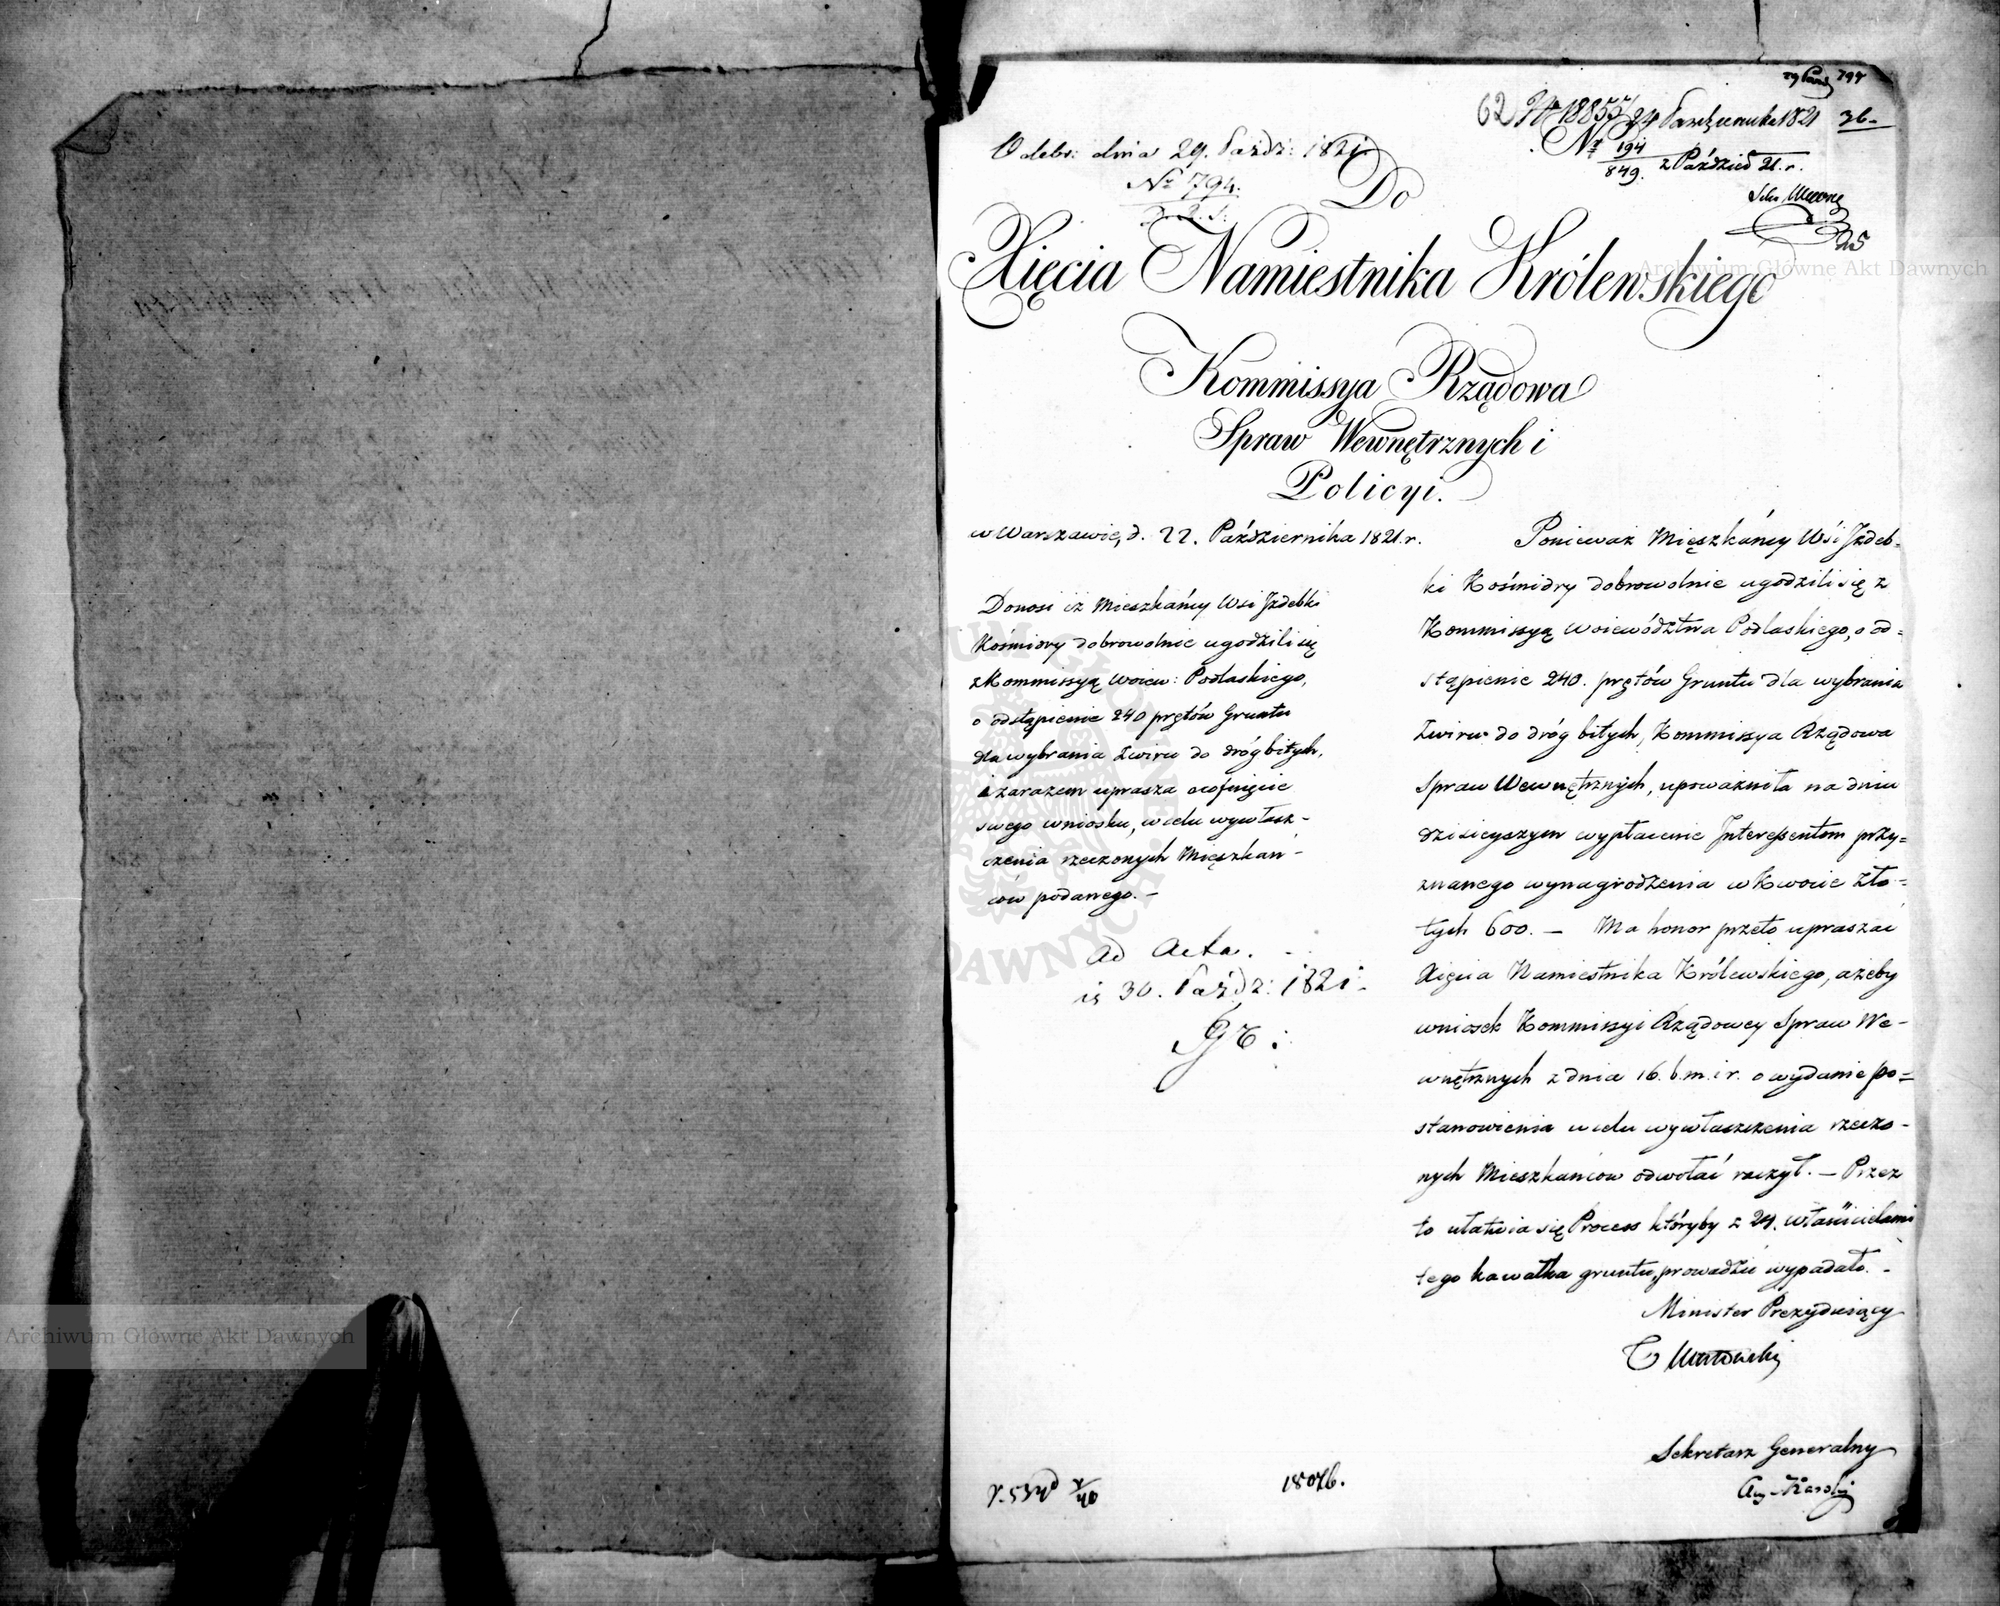 29 Paźd 794
62 N 18855/24 Października 1821 36.
Odebr: dnia 29. Paźdz: 1821.
No 194/849. z Paździer 21. r.
No 794.
Do
Xięcia Namiestnika Królewskiego
Kommissya Rządowa
Spraw Wewnętrznych i
Policyi.
w Warszawie, d. 22. Października 1821. r.
Donosi iż Mieszkańcy Wsi Jzdebki
Kośmidry dobrowolnie ugodzili się
z Kommissyą Woiew: Podlaskiego,
o odstąpienie 240 prętów Gruntu
dla wybrania Zwiru do dróg bitych,
i zarazem uprasza o cofnięcie
swego wniosku, w celu wywłasz-
czenia rzeczonych Mięszkań-
ców podanego. -
ad Acta.
30. Paźdz: 1821.
Ponieważ Mięszkańcy Wsi Jzdeb-
ki Kośmidry dobrowolnie ugodzili się z
Kommissyą Woiewództwa Podlaskiego, o od=
stąpienie 240. prętów Gruntu dla wybrania
Zwiru do dróg bitych, Kommissya Rządowa
Spraw Wewnętrznych, upoważniła na dniu
dzisieyszym wypłacenie Interessentom przy=
znanego wynagrodzenia w Kwocie Zło=
tych 600. — Ma honor przeto upraszać
Xięcia Namiestnika Królewskiego, ażeby
wniosek Kommissyi Rządowey Spraw We-
wnętrznych z dnia 16. b. m. i r. o wydanie po=
stanowienia w celu wywłaszczenia rzeczo-
nych Mieszkańców odwołać raczył. — Przez
to ułatwia się Process któryby z 24. właścicielami
tego kawałka gruntu, prowadzić wypadało. -
Minister Prezyduiący
T Mostowski
Sekretarz Generalny
18076.
Archiwum Główne Akt Dawnych
Archiwum Główne Akt Dawnych